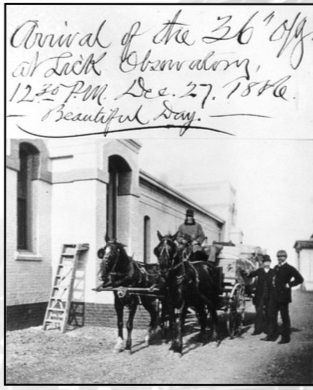 Arrival of the 36" o/g.
at Lick Observatory,
12.30 P.M. Dec. 27, 1886.
Beautiful Day.